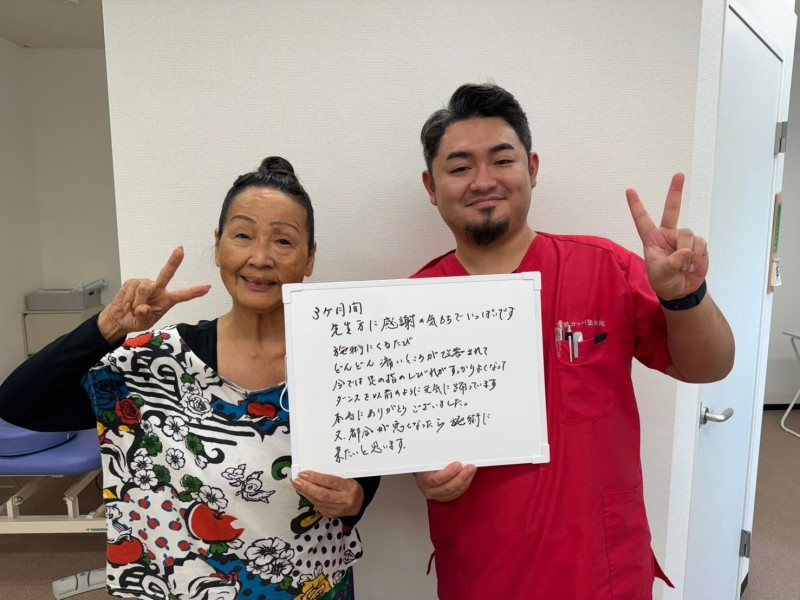 3ヶ月間
先生方に感謝の気もちでいっぱいです
施術にくるたび
どんどん痛いところが改善されて
今では足の指のしびれがすっかりよくなって
ダンスを以前のように元気に踊っています
本当にありがとうございました。
又、都合が悪くなったら施術に
来たいと思います。
カッパ整体院